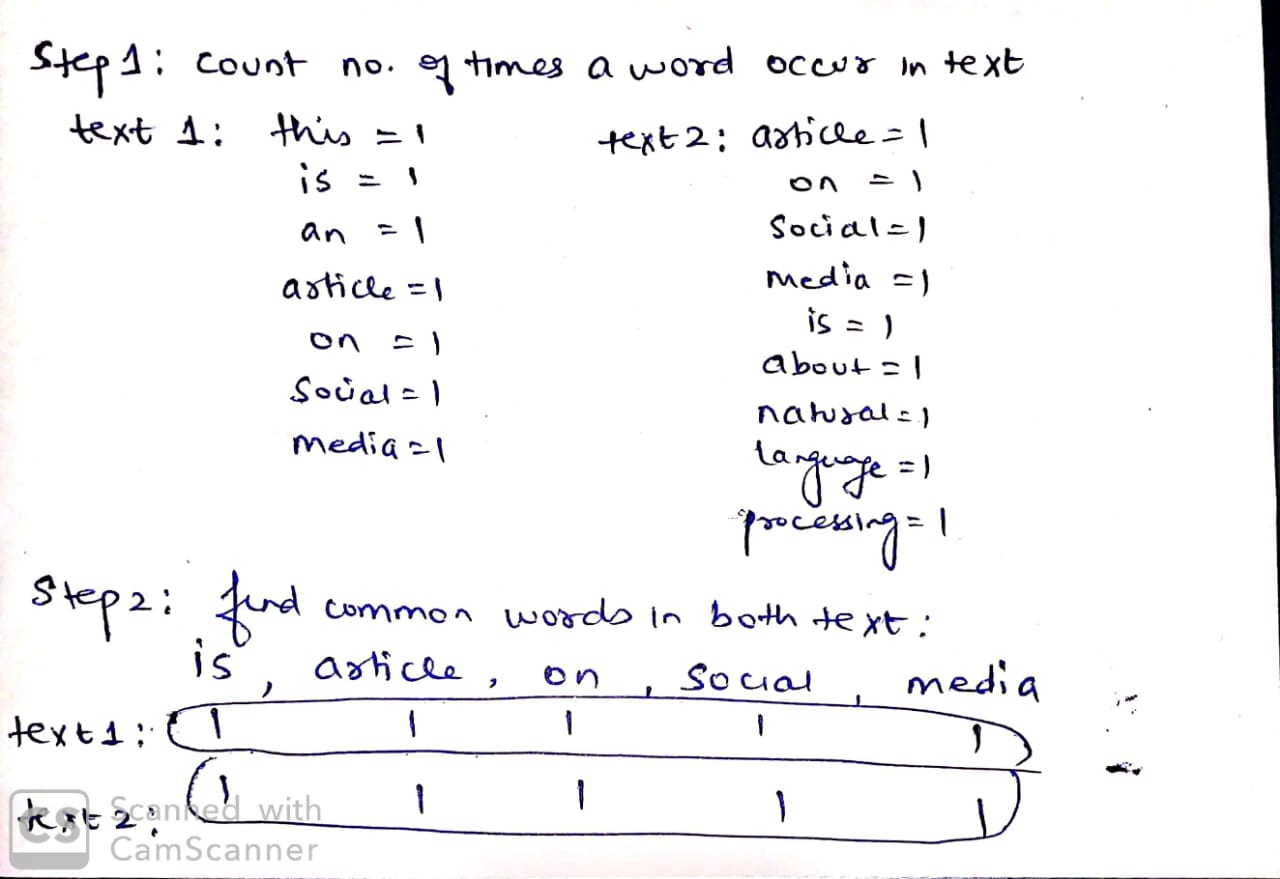 Step 1: count no. of times a word occur in text
text 1: this = 1 text 2: article = 1
is = 1 on = 1
an = 1 Social = 1
article = 1 media = 1
on = 1 is = 1
Social = 1 about = 1
media = 1 natural = 1
language = 1
processing = 1
Step 2: find common words in both text:
is, article, on, social, media
text 1: 1 1 1 1 1
text 2: 1 1 1 1 1
CS Scanned with
CamScanner